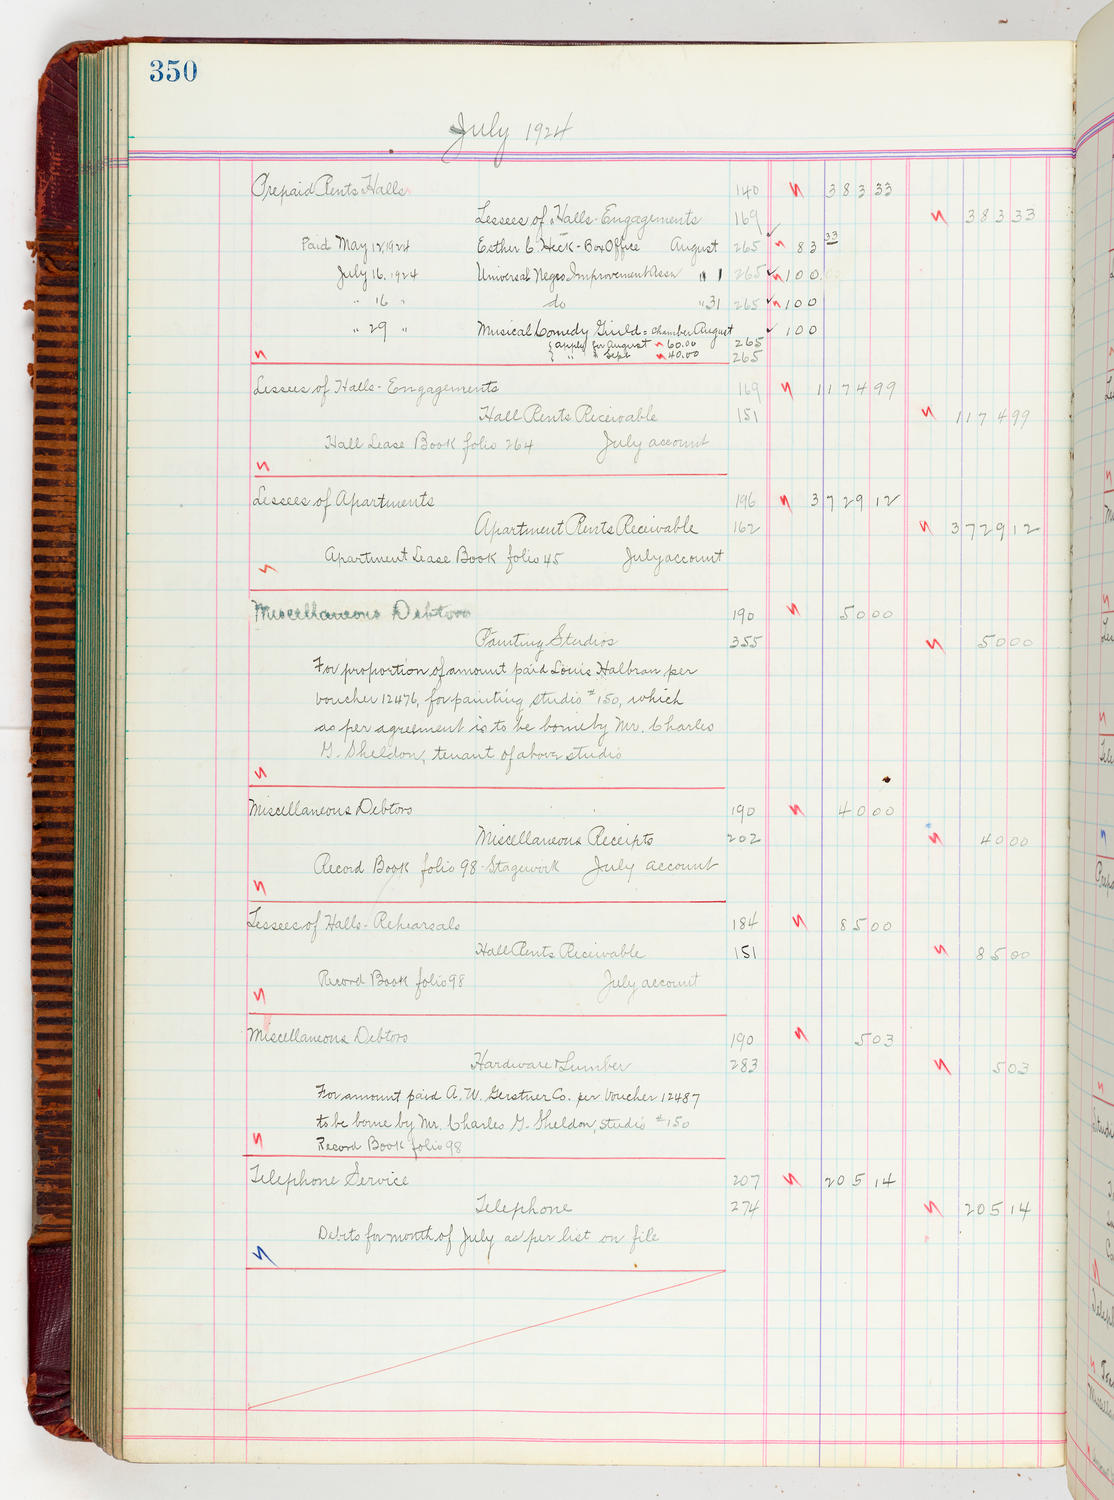 350
July 1924
Prepaid Rents Halls 140 383 33
Lessees of Halls - Engagements 169 383 33
Paid May 12, 1924 Esther C. Heck - Box Office August 265 83 33
July 16, 1924 Universal Negro Improvement Assn " 1 265 100.00
" 16 " do " 31 265 100
" 29 " Musical Comedy Guild = chamber August 100
{ apply for August 60.00 265
{ " " Sept 40.00 265
Lessees of Halls - Engagements 169 1174 99
Hall Rents Receivable 151 1174 99
Hall Lease Book folio 264 July account
Lessees of Apartments 196 3729 12
Apartment Rents Receivable 162 3729 12
Apartment Lease Book folio 45 July account
Miscellaneous Debtors 190 50 00
Painting Studios 355 50 00
For proportion of amount paid Louis Halbran per
voucher 12476, for painting studio #150, which
as per agreement is to be borne by Mr. Charles
G. Sheldon, tenant of above studio
Miscellaneous Debtors 190 40 00
Miscellaneous Receipts 202 40 00
Record Book folio 98 - Stagework July account
Lessees of Halls - Rehearsals 184 85 00
Hall Rents Receivable 151 85 00
Record Book folio 98 July account
Miscellaneous Debtors 190 5 03
Hardware & Lumber 283 5 03
For amount paid A. W. Gerstner Co. per Voucher 12487
to be borne by Mr. Charles G. Sheldon, studio #150
Record Book folio 98
Telephone Service 207 205 14
Telephone 274 205 14
Debits for month of July as per list on file